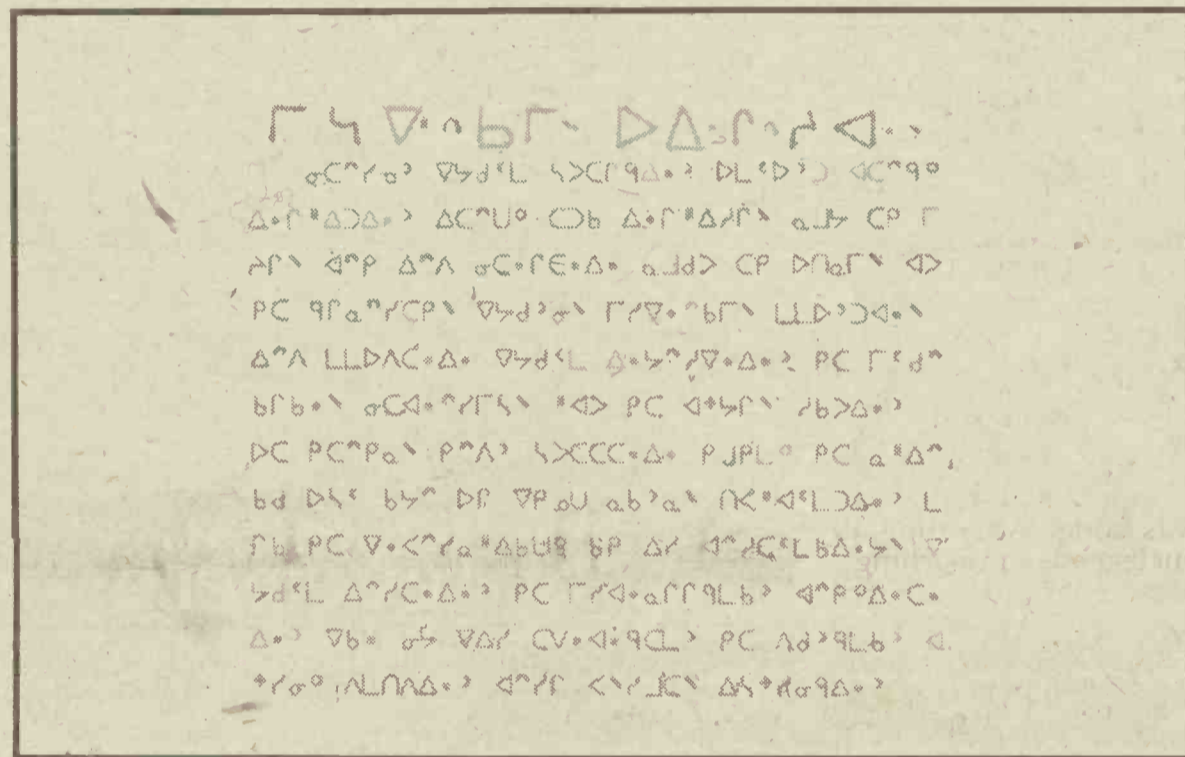 ᒥᓴᐌᐢᑲᒥᐠ ᐅᐃᒋᐢᓱᐊᐧᐣ
ᓂᑕᐢᓯᓇᐣ ᐁᔭᑯᑦᒪ ᓴᐳᑕᒋᑫᐃᐧᐣ ᐊᑕᐢᑫᐤ
ᐃᐧᒋᐦᐃᑐᐃᐧᐣ ᐃᑕᐢᑌᐤ ᑕᑐᑲ ᐃᐧᒋᐦᐃᓱᒋᐠ ᓇᒧᔭ ᑕᑭ ᒥ
ᔨᒋᐠ ᐊᐢᑭ ᐃᐢᐱ ᓂᑕᐧᒋᕮᐧᐃᐧ ᓇᒧᑯᐳ ᑕᑭ ᐅᑎᓇᒥᐠ ᐊᐳ
ᑭᑕ ᑫᒋᓇᐢᓯᑕᑭᐠ ᐁᔭᑯᐣᓂᐠ ᒥᓯᐌᐢᑲᒥᐠ ᒪᒪᐅᐣᑐᐊᐧᐠ
ᐃᐢᐱ ᒪᒪᐅᐱᑕᐧᐃᐧ ᐁᔭᑯᑦᒪ ᐃᐧᔭᐢᓱᐌᐃᐧᐣ ᑭᑕ ᒥᑦᑯᐢ
ᑲᒋᑲᐧᐠ ᓂᑕᐊᐧᐢᓯᒥᓴᐠ ᐦᐊᐳ ᑭᑕ ᐊᕀᔭᒋᐠ ᓱᑲᐳᐃᐧᐣ
ᐅᑕ ᑭᑕᐢᑭᓇᐠ ᑭᐢᐱᐣ ᓴᐳᑕᑕᐧᐃᐧ ᑭᒍᑭᒪᐤ ᑭᑕ ᓇᐦᐃᐢ
ᑲᑯ ᐅᓴᑦ ᑲᔭᐢ ᐅᒋ ᐁᑭᓄᑌ ᓇᑲᐣᓇᐠ ᑎᐸᐦᐊᑦᒪᑐᐃᐧᐣ ᒪ
ᒥᑲ ᑭᑕ ᐌᐸᐢᓯᓇᐦᐃᑲᑌᑫ ᑲᑭ ᐃᓯ ᐊᐢᓱᑕᑦᒪᑲᐃᐧᔭᐠ ᐁ
ᔭᑯᑦᒪ ᐃᐢᓯᑕᐧᐃᐧᐣ ᑭᑕ ᒥᓯᐊᐧᓇᒋᒋᑫᒪᑲᐣ ᐊᐢᑭᐤᐃᐧᑕᐧ
ᐃᐧᐣ ᐁᑲᐧ ᓂᔭ ᐁᐃᓯ ᑕᐯᐧᐊᐧᑫᑕᒪᐣ ᑭᑕ ᐱᑯᐣᑫᒪᑲᐣ ᐊ
ᕀᓯᓂᐤ ᐱᒪᑎᐱᐃᐧᐣ ᐊᐢᓯᒋ ᐸᐠᓯᒧᑕᐠ ᐃᓴᕀᓯᓂᑫᐃᐧᐣ